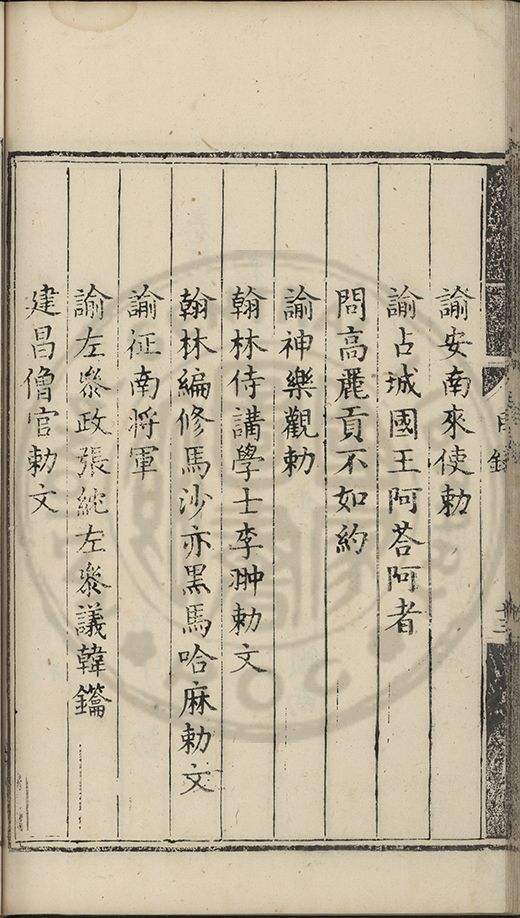 諭安南來使勅
諭占城國王阿荅阿者
問高麗貢不如約
諭神樂觀勅
翰林侍講學士李翀勅文
翰林編修馬沙亦黑馬哈麻勅文
諭征南將軍
諭左叅政張紞左叅議韓鑰
建昌僧官勅文
目錄